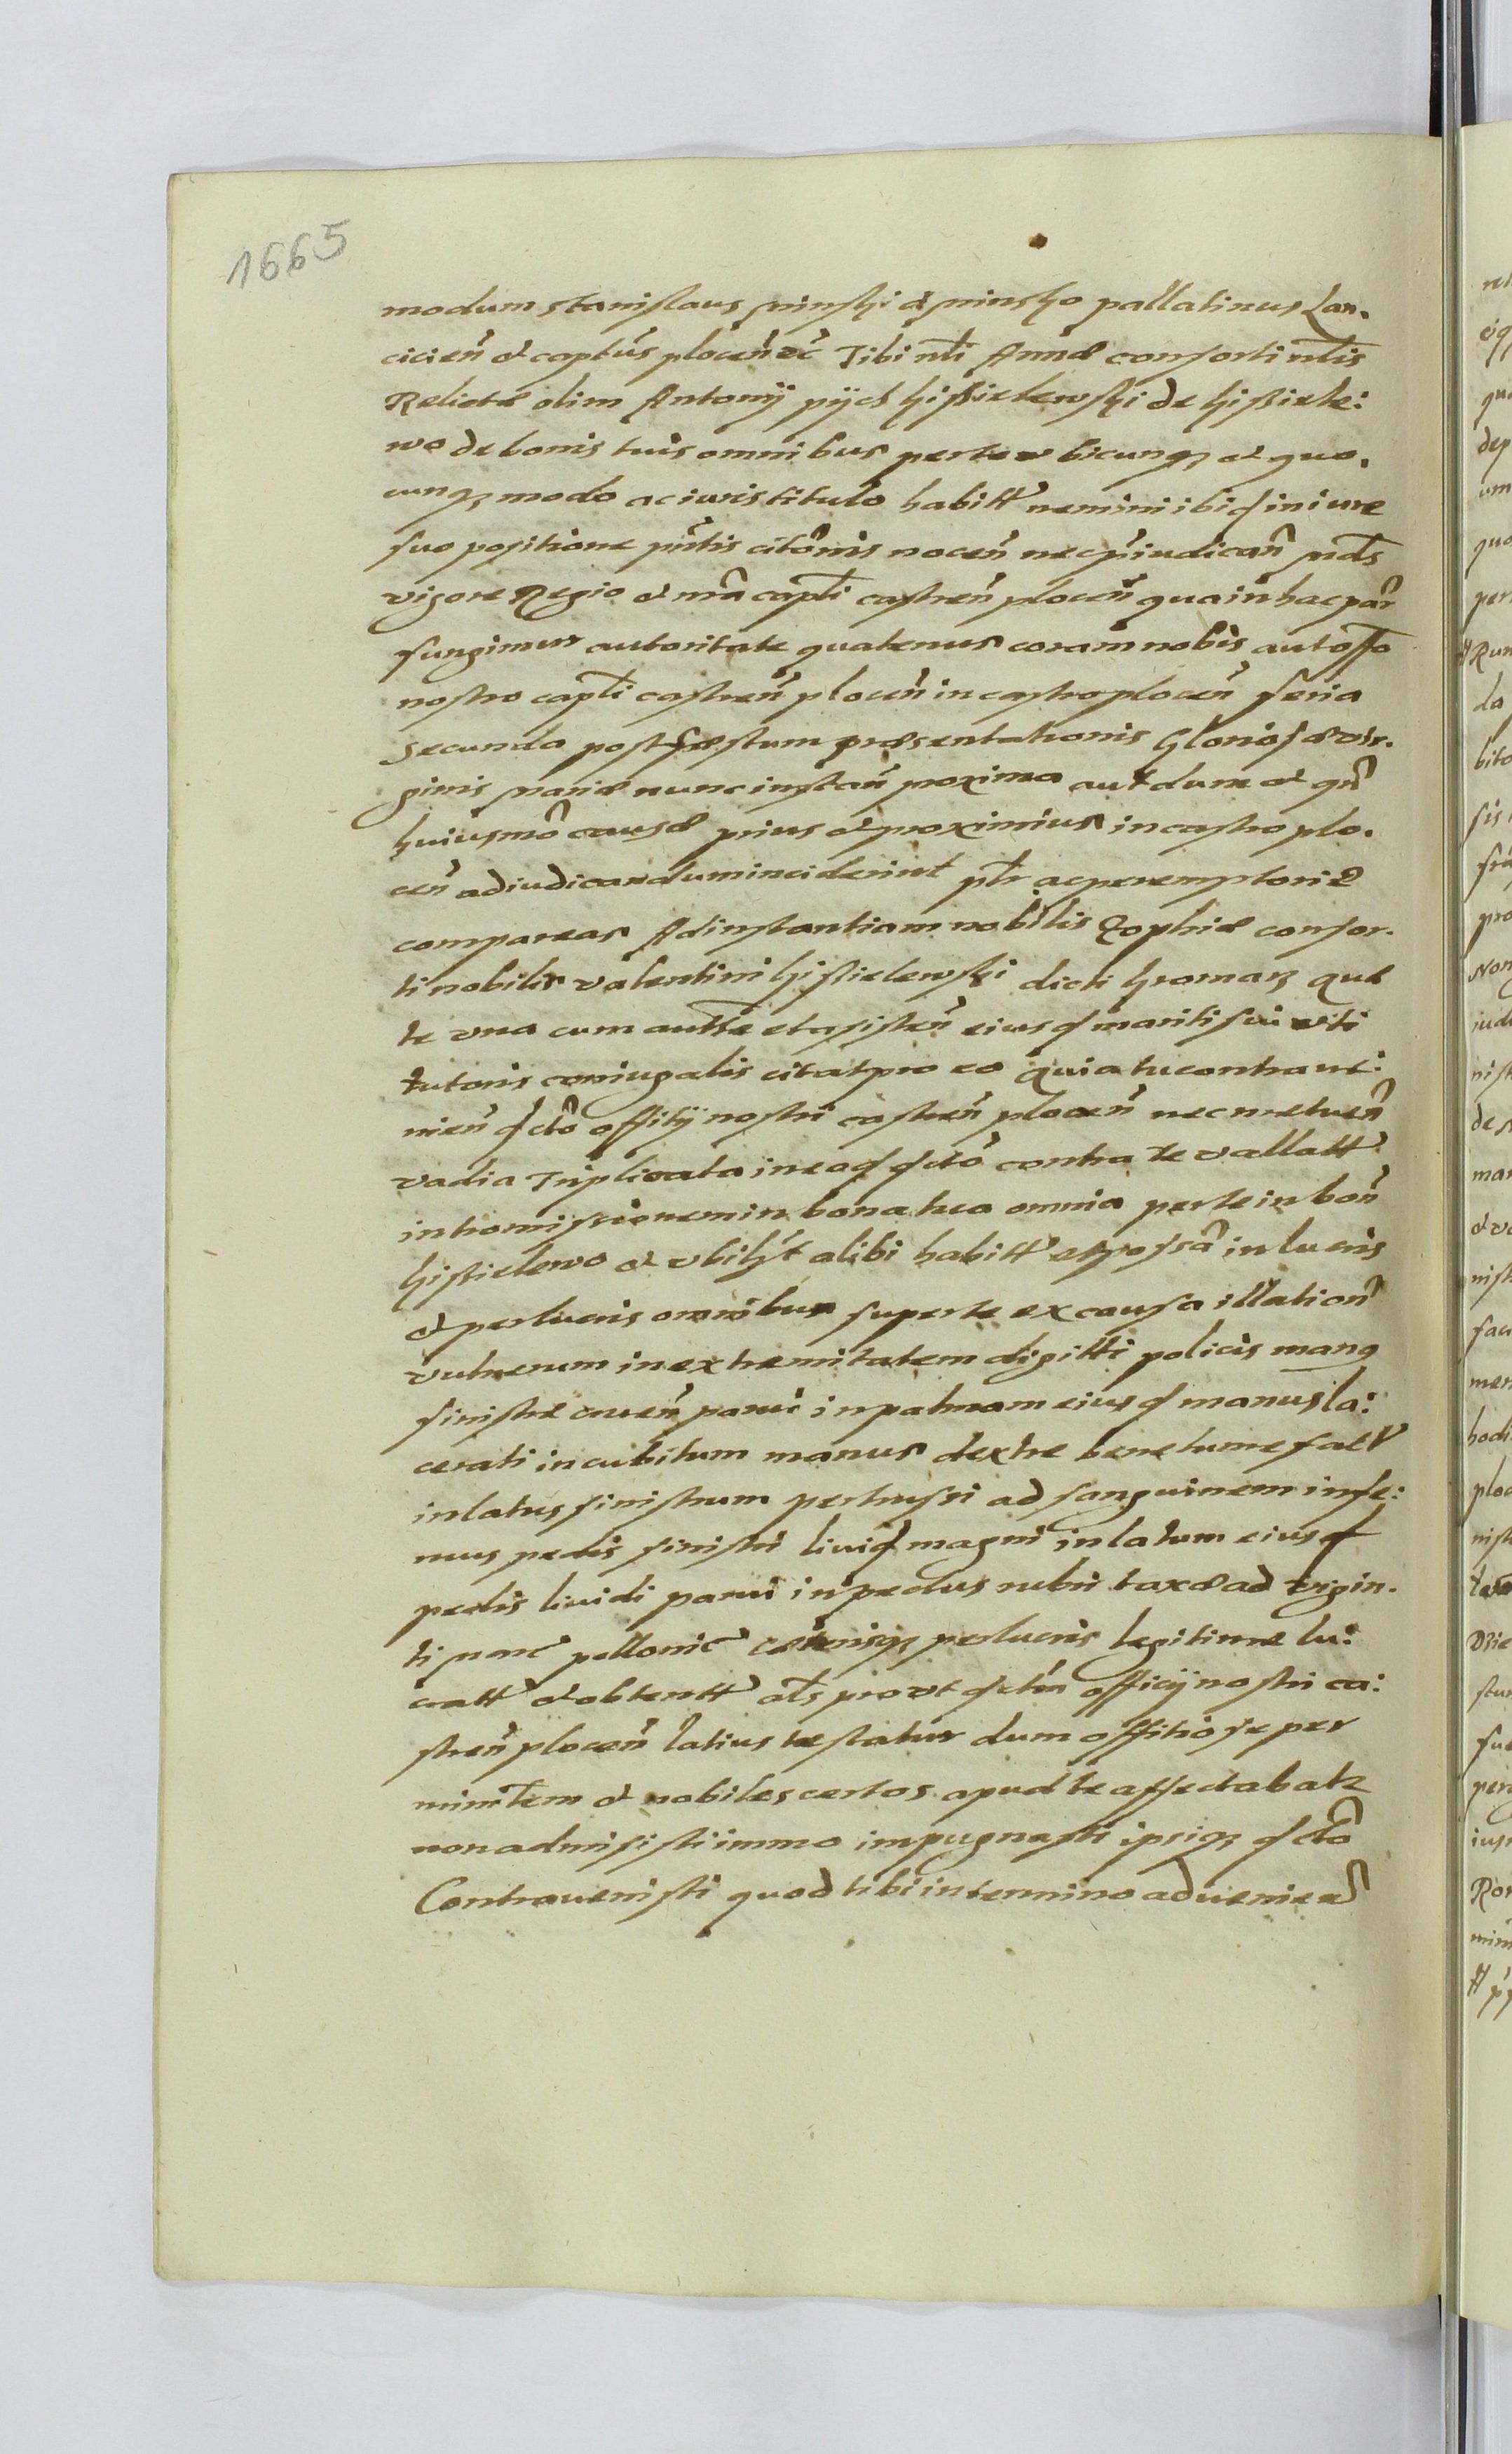 1665
modum Stanislaus Minski de Minsko pallatinus Lan.
cicien̄ et capt̄us plocen̄ etc̄ Tibi nl̄i Annæ consorti nl̄is
Relictæ olim Antonij pijch Kissielewski de Kissiele:
wo de bonis tuis omnibus per te vbicunqꝫ et quo.
cunqꝫ modo ac iuris titulo habitt̄ nemini ibid in iure
suo positione pn̄tis citōnis nocen̄ nec p̄iudican̄ Md̄s
vigore Regio et nr̄a capl̄i castren̄ plocen̄ qua in hac par̄
fungimur autoritate quatenus coram nobis aut offo
nostro capl̄i castren̄ plocen̄ in castro plocen̄ feria
secunda post festum præsentationis Gloriosæ vir.
ginis Mariæ nunc instan̄ proxima aut dum et qn̄
huiusmō causæ prius et proximius in castro plo.
cen̄ adiudicandum inciderint pl̄r ac peremptoriæ
compareas Ad instantiam nobilis Zophiæ consor.
ti nobilis Valentini Kissielewski dicti Kromarz quæ
te vna cum autt̄e et asisten̄ eiusd mariti sui vti
tutoris coniugalis citat pro eo quia tu contraue:
nien̄ dctō offitij nostri castren̄ plocen̄ nec metuen̄
vadia Triplicata in eod dctō contra te vallatt̄
intromissionem in bona tua omnia per te in bon̄
Kissielewo et vbilḡt alibi habitt̄ et possā in lucris
et perlucris omnibus super te ex causa illation̄
vulnerum in extremitatem digitti policis manꝯ
sinistre cruen̄ parui in palmam eiusd manus la:
cerati in cubitum manus dextre bene tumefact̄
in latus sinistrum pertrussi ad sanguinem in fe:
mus pedis sinistri liuid magni in latum eiusd
pedis liuidi parui in pectus rubri taxæ ad vigin.
ti Marc̄ pollonic̄ cæterisqꝫ perlucris legitime lu:
cratt̄ et obtentt̄ al̄s prout dctm̄ officij nostri ca:
stren̄ plocen̄ latius testatur dum offitiose per
minr̄lem et nobiles certos apud te affectabatz
non admisisti immo impugnasti ipsiqꝫ dctō
Contrauenisti quod tibi in termino aduenien̄